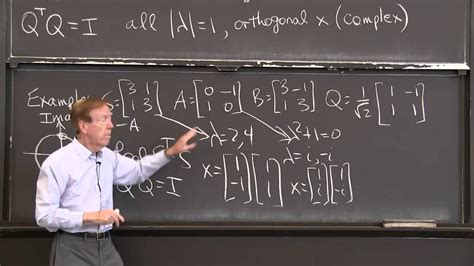 QᵀQ=I all |λ|=1, orthogonal x (complex)
Example: S=[3 1; 1 3] A=[0 -1; 1 0] B=[3 -1; 1 3] Q=1/√2 [1 -1; 1 1]
-A λ=2,4 λ²+1=0
λ=i,-i
Q=I x=[1; -1] [1; 1] x=[1; i] [1; -i]